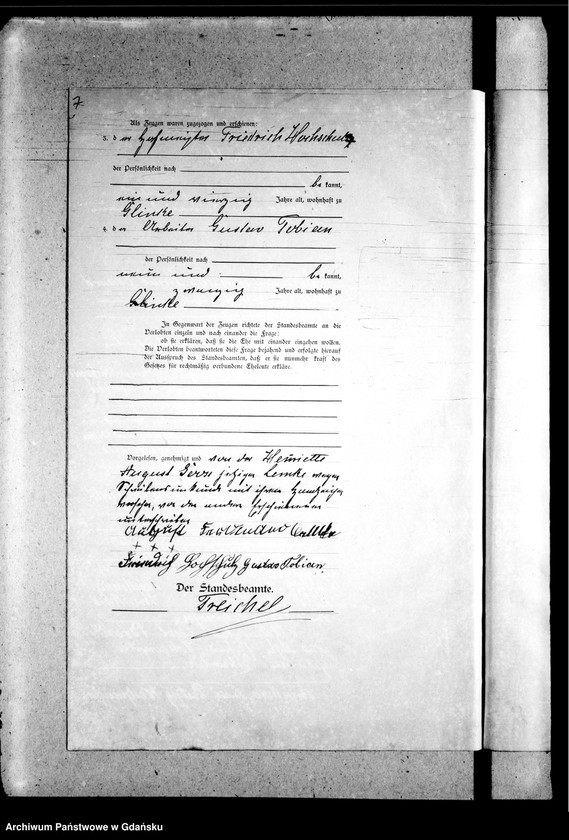 7
Als Zeugen waren zugezogen und erschienen:
3. der Hofmeister Friedrich Hochschulz
der Persönlichkeit nach
be kannt,
ein und vierzig Jahre alt, wohnhaft zu
Glinke
4. der Arbeiter Gustav Tobian
der Persönlichkeit nach
neun und be kannt,
zwanzig Jahre alt, wohnhaft zu
Glinke
In Gegenwart der Zeugen richtete der Standesbeamte an die
Verlobten einzeln und nach einander die Frage:
ob sie erklären, daß sie die Ehe mit einander eingehen wollen.
Die Verlobten beantworteten diese Frage bejahend und erfolgte hierauf
der Ausspruch des Standesbeamten, daß er sie nunmehr kraft des
Gesetzes für rechtmäßig verbundene Eheleute erkläre.
Vorgelesen, genehmigt und von der Henriette
August jetzigen Lemke wegen
Schreibensunkunde mit ihrem Handzeichen
versehen, von den andern Erschienenen
unterschrieben
August Ferdinand Lemke
+ + +
Friedrich Hochschulz Gustav Tobian
Der Standesbeamte.
Treichel
Archiwum Państwowe w Gdańsku